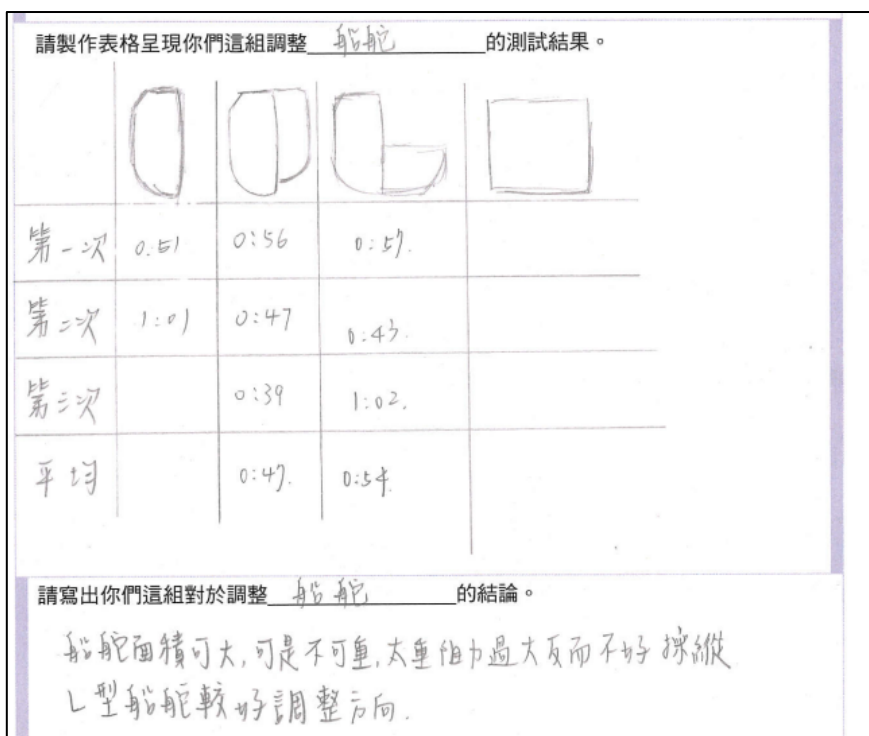 請製作表格呈現你們這組調整 船舵 的測試結果。
第一次 0:51 0:56 0:57.
第二次 1:01 0:47 0:43.
第三次 0:39 1:02.
平均 0:47. 0:54.
請寫出你們這組對於調整 船舵 的結論。
船舵面積可大,可是不可重,太重阻力過大反而不好操縱
L型船舵較好調整方向.